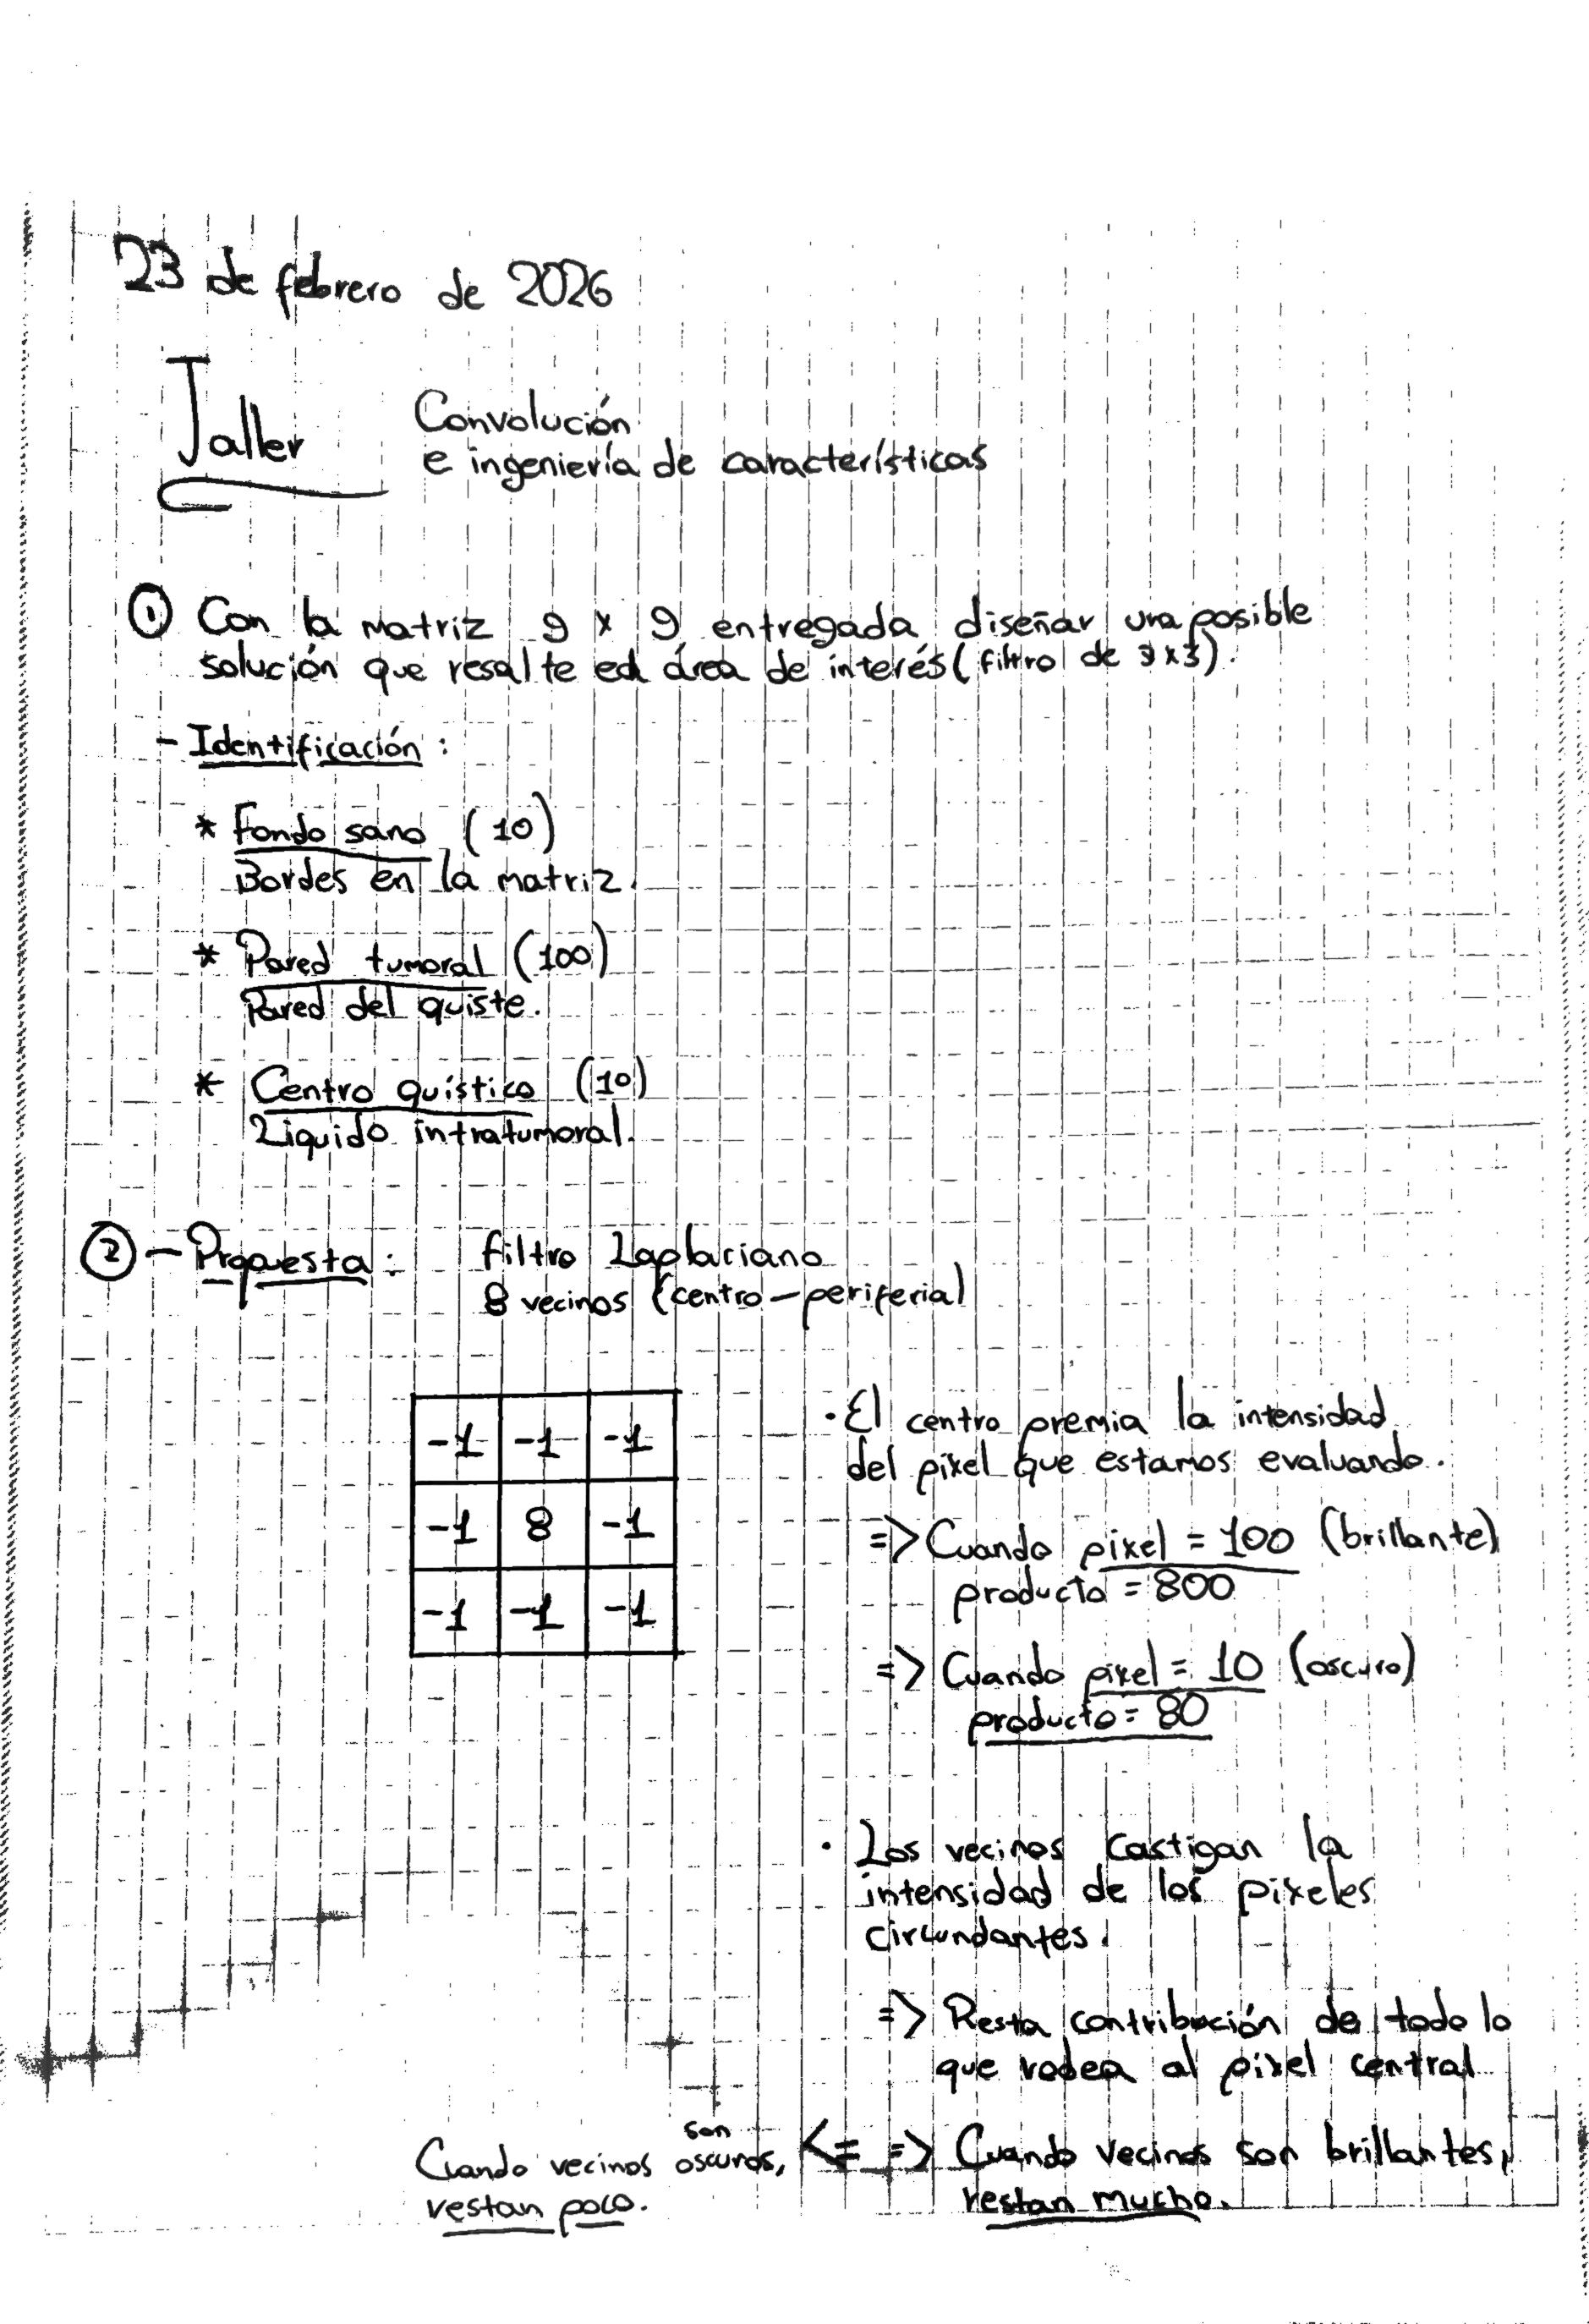 23 de febrero de 2026
Taller
Convolución
e ingeniería de características
① Con la matriz 9 x 9 entregada diseñar una posible
solución que resalte ed área de interés (filtro de 3x3).
- Identificación:
* Fondo sano (10)
Bordes en la matriz.
* Pared tumoral (100)
Pared del quiste.
* Centro quístico (10)
Liquido intratumoral.
② - Propuesta: filtro Laplaciano
8 vecinos (centro-periferial)
-1 -1 -1
-1 8 -1
-1 -1 -1
· El centro premia la intensidad
del pixel que estamos evaluando.
=> Cuando pixel = 100 (brillante)
producto = 800
=> Cuando pixel = 10 (oscuro)
producto = 80
· Los vecinos castigan la
intensidad de los pixeles
circundantes.
=> Resta contribución de todo lo
que rodea al pixel central
<= => Cuando vecinos son brillantes,
restan mucho.
Cuando vecinos son oscuros,
restan poco.